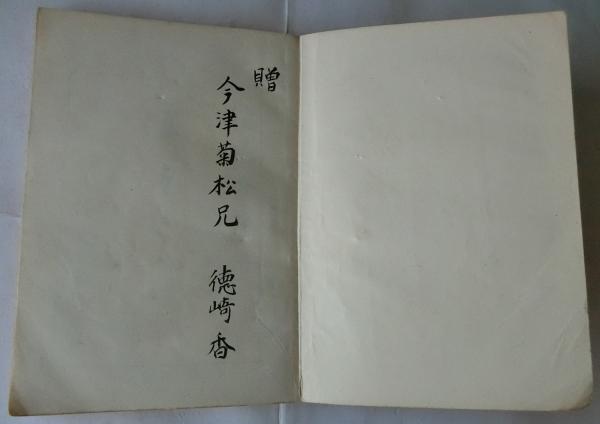 贈
今津菊松兄
徳崎香